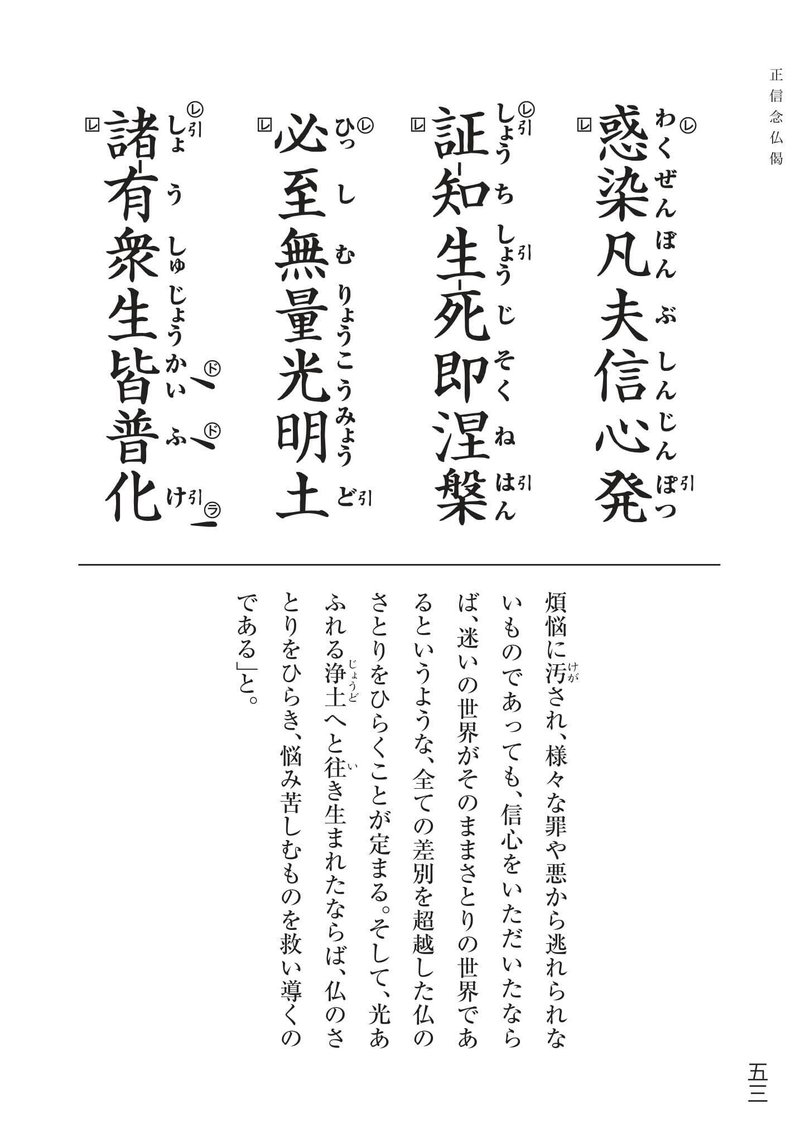 正信念仏偈
惑染凡夫信心発
わくぜんぼんぶしんじんぽつ
レ
引
レ
証知生死即涅槃
しょうちしょうじそくねはん
レ
引
引
引
レ
必至無量光明土
ひっしむりょうこうみょうど
レ
引
レ
諸有衆生皆普化
しょうしゅじょうかいふけ
レ
引
ド
ド
引
ラ
レ
煩悩に汚され、様々な罪や悪から逃れられな
けが
いものであっても、信心をいただいたなら
ば、迷いの世界がそのままさとりの世界であ
るというような、全ての差別を超越した仏の
さとりをひらくことが定まる。そして、光あ
ふれる浄土へと往き生まれたならば、仏のさ
じょうど
い
とりをひらき、悩み苦しむものを救い導くの
である」と。
五三